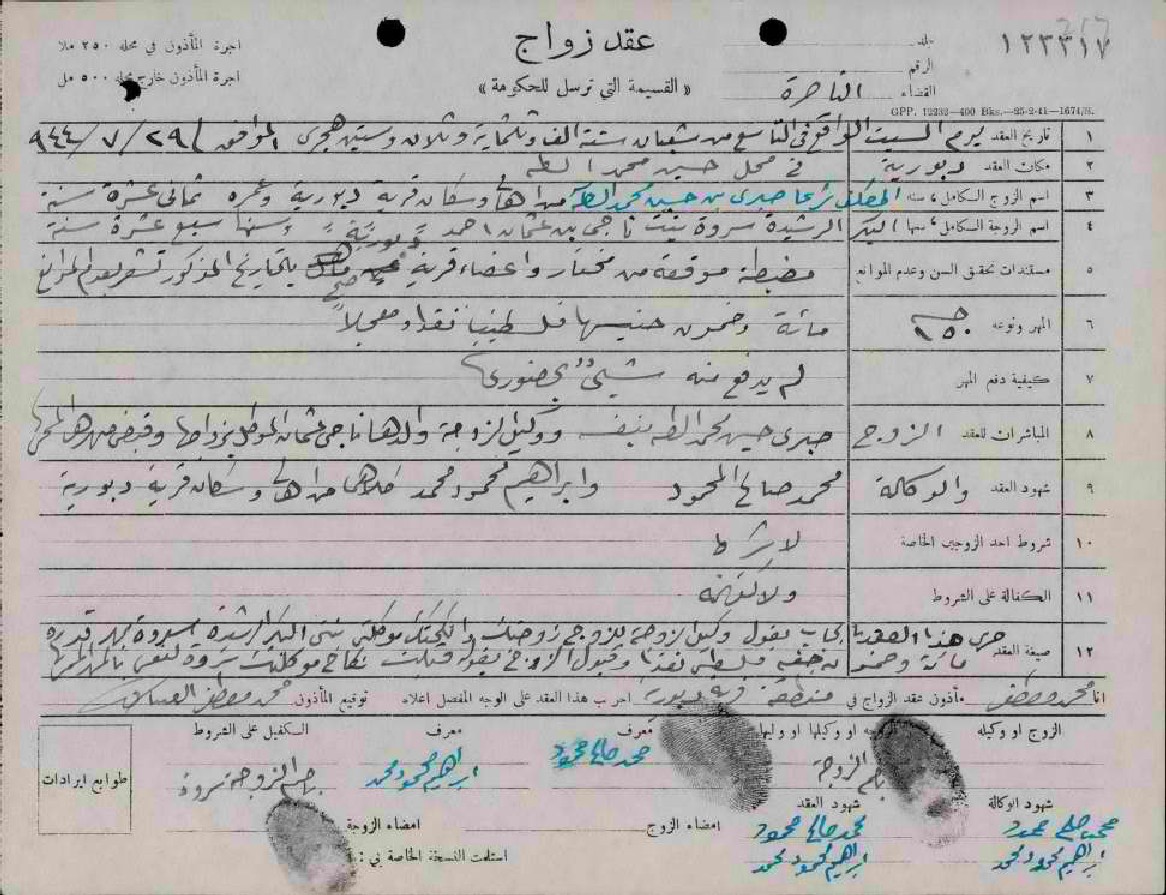 عقد زواج
« القسيمة التي ترسل للحكومة »
اجرة المأذون في محله ٢٥٠ ملا
اجرة المأذون خارج محله ٥٠٠ مل
١٢٣٣١٧
جلد
الرقم
القضاء الناصرة
GPP. 12232—400 Bks.—25-2-41—1674/S.
١ تاريخ العقد يوم السبت الواقع في التاسع من شعبان سنة الف وثلثماية وثلاث وستين هجري الموافق ٢٩/٧/٩٤٤
٢ مكان العقد دبورية في محل حسين محمد الطه
٣ اسم الزوج الكامل، سنه المكلف شرعا صبري بن حسين محمد الطه من اهالي وسكان قرية دبورية وعمره ثماني عشرة سنة
٤ اسم الزوجة الكامل، سنها البكر الرشيدة سروة بنت ناجي بن عثمان احمد دبورية وسنها سبع عشرة سنة
٥ مستندات تحقق السن وعدم الموانع مضبطة موقعة من مختار واعضاء قرية بالتاريخ المذكور تشعر بعدم الموانع
٦ المهر ونوعه ١٥٠ مائة وخمسون جنيها فلسطينيا نقدا ومعجلا
٧ كيفية دفع المهر لم يدفع منه شيء بحضوري
٨ المباشران للعقد الزوج صبري حسين محمد الطه بنفسه ووكيل الزوجة والدها ناجي عثمان الموكل بزواجها وقبض مهرها
٩ شهود العقد والوكالة محمد صالح المحمود وابراهيم محمود محمد كلاهما من اهالي وسكان قرية دبورية
١٠ شروط احد الزوجين الخاصة لا شرط
١١ الكفالة على الشروط ولا كفالة
١٢ صيغة العقد جرى هذا العقد بايجاب بقول وكيل الزوجة للزوج زوجتك وانكحتك موكلتي بنتي البكر الرشيدة سروة بمهر قدره
مائة وخمسون جنيه فلسطيني نقدا وقبول الزوج بقوله قبلت نكاح موكلتك سروة لنفسي بالمهر
انا محمد مأذون عقد الزواج في منطقة دبورية اجريت هذا العقد على الوجه المفصل اعلاه توقيع المأذون محمد
الزوج او وكيله
الزوجه او وكيلها او وليها
معرف
معرف
الكفيل على الشروط
بصم الزوجة
محمد صالح محمود
ابراهيم محمود محمد
بصم الزوجة سروة
طوابع ايرادات
شهود الوكالة
شهود العقد
محمد صالح محمود
محمد صالح محمود
امضاء الزوج
امضاء الزوجة
ابراهيم محمود محمد
ابراهيم محمود محمد
استلمت النسخة الخاصة بي :